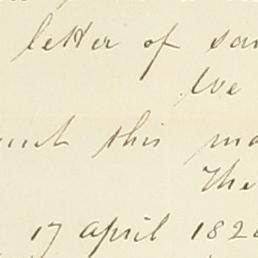 letter of
We
this
The
17 april 182